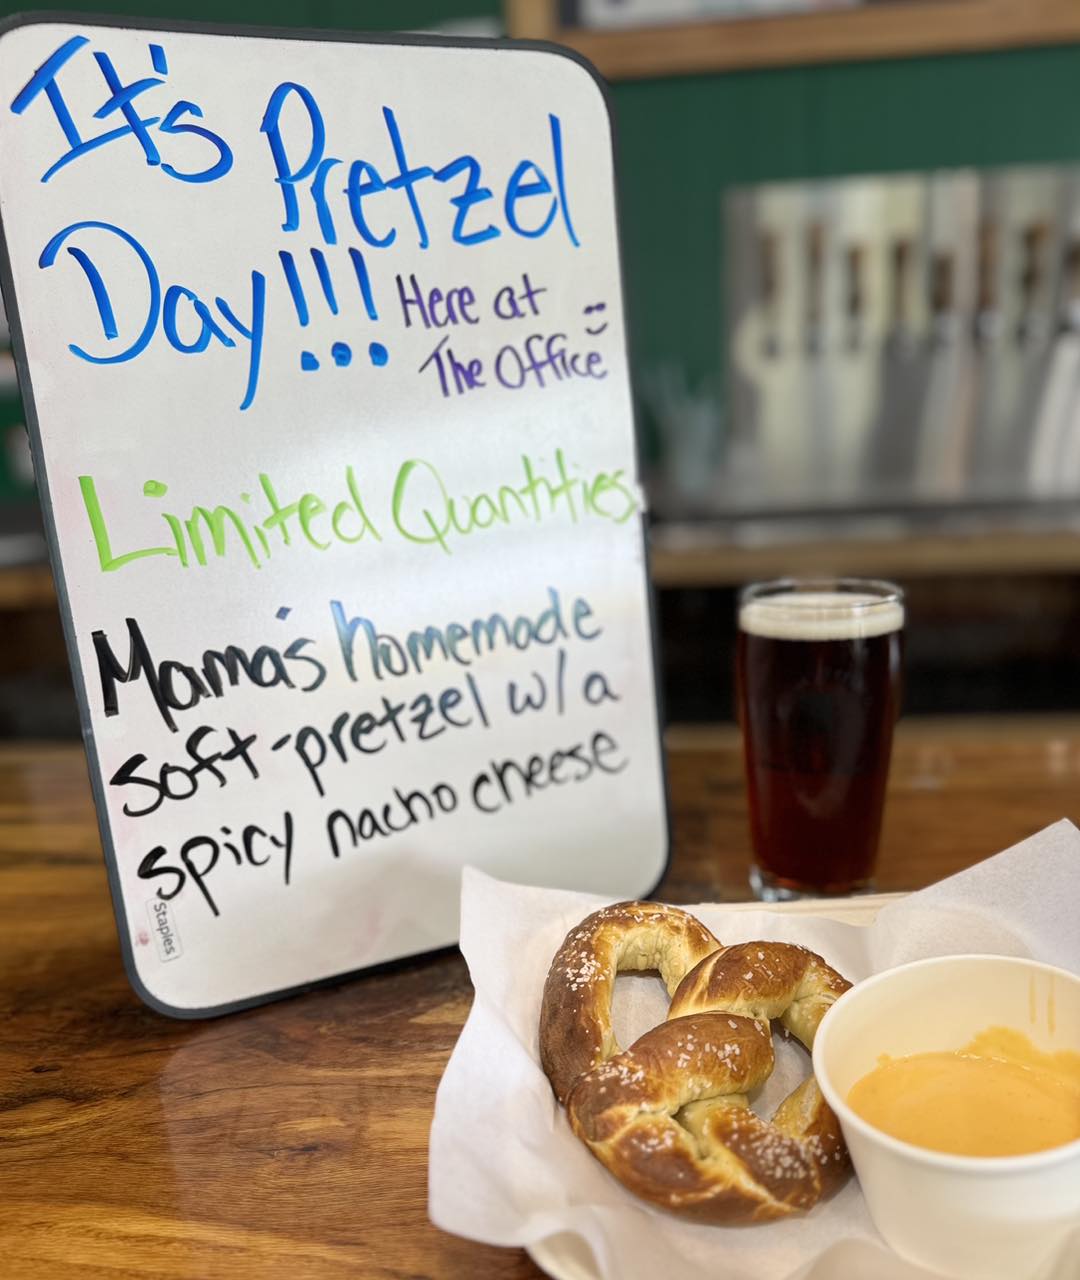 It's Pretzel
Day!!!
Here at
The Office
Limited Quantities
Mama's homemade
soft-pretzel w/ a
spicy nacho cheese
Staples